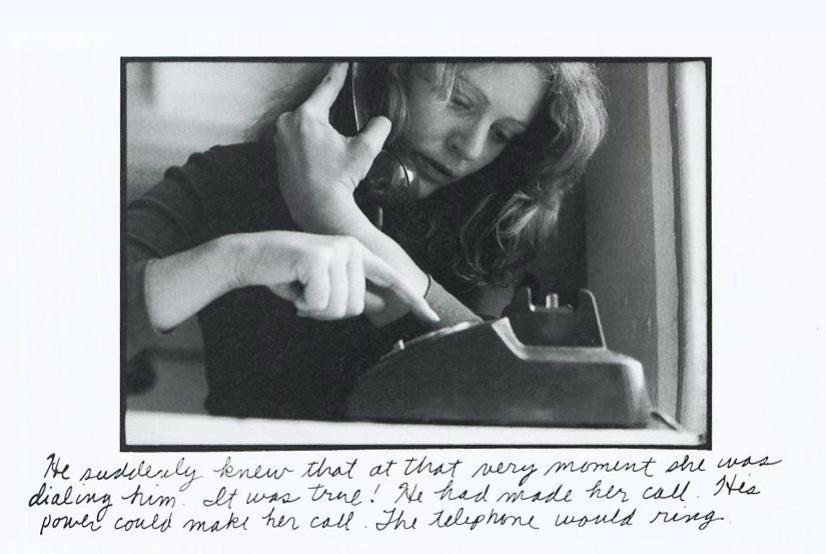 He suddenly knew that at that very moment she was
dialing him. It was true! He had made her call. His
power could make her call. The telephone would ring.